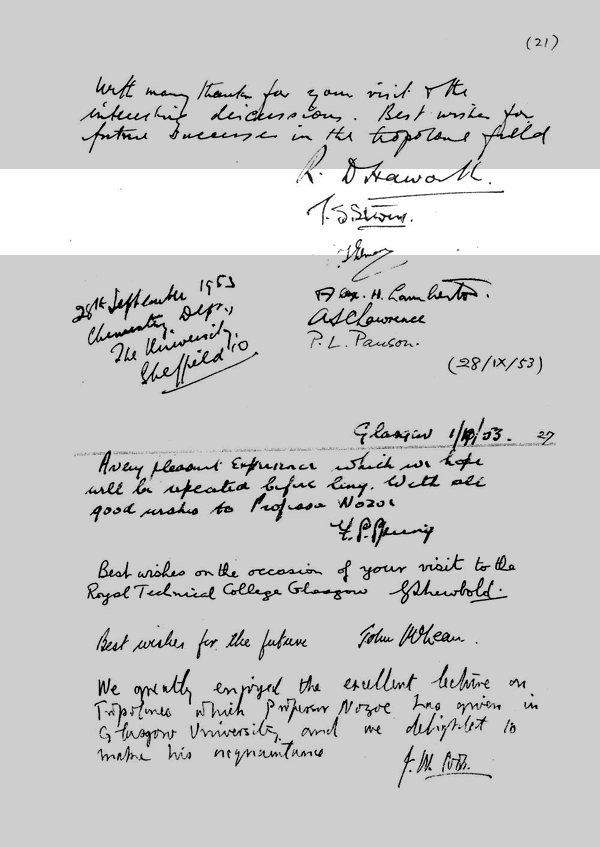 (21)
With many thanks for your visit & the
interesting discussions. Best wishes for
future successes in the tropolone field
R. D. Haworth.
T. S. Stevens.
28th September 1953
Chemistry Dept.,
The University,
Sheffield 10
Alex. H. Lamberton.
A S C Lawrence
P. L. Pauson.
(28/IX/53)
Glasgow 1/10/53. 27
A very pleasant Experience which we hope
will be repeated before long. With all
good wishes to Professor Nozoe
F. S. Spring
Best wishes on the occasion of your visit to the
Royal Technical College Glasgow
Best wishes for the future John McLean.
We greatly enjoyed the excellent lecture on
Tropolones which Professor Nozoe has given in
Glasgow University, and are delighted to
make his acquaintance
J. W. Cook.